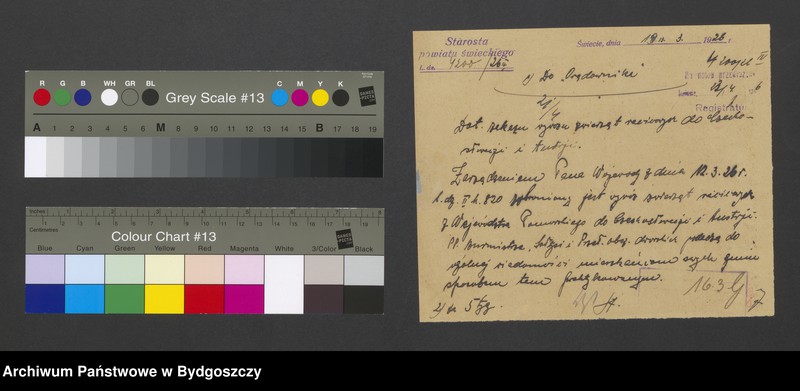 R G B WH GR BL
Grey Scale #13
C M Y K
A 1 2 3 4 5 6 M 8 9 10 11 12 13 14 15 B 17 18 19
Inches
Centimetres
Colour Chart #13
Blue Cyan Green Yellow Red Magenta White 3/Color Black
Starosta
powiatu świeckiego
L. dz. 4200/26
Świecie, dnia 19 3. 1926 r.
1) Do "Orędownika"
Registrato
Dot. zakazu wywozu zwierząt racicowych do Czecho-
słowacji i Austrji.
Zarządzeniem Pana Wojewody z dnia 12.3.26 r.
L. dz. 820 zabroniony jest wywóz zwierząt racicowych
z Województwa Pomorskiego do Czechosłowacji i Austrji.
PP. burmistrze, sołtysi i Przeł. obsz. dworskich podadzą do
ogólnej wiadomości mieszkańcom swych gmin
sposobem tam praktykowanym.
2)
163
Archiwum Państwowe w Bydgoszczy